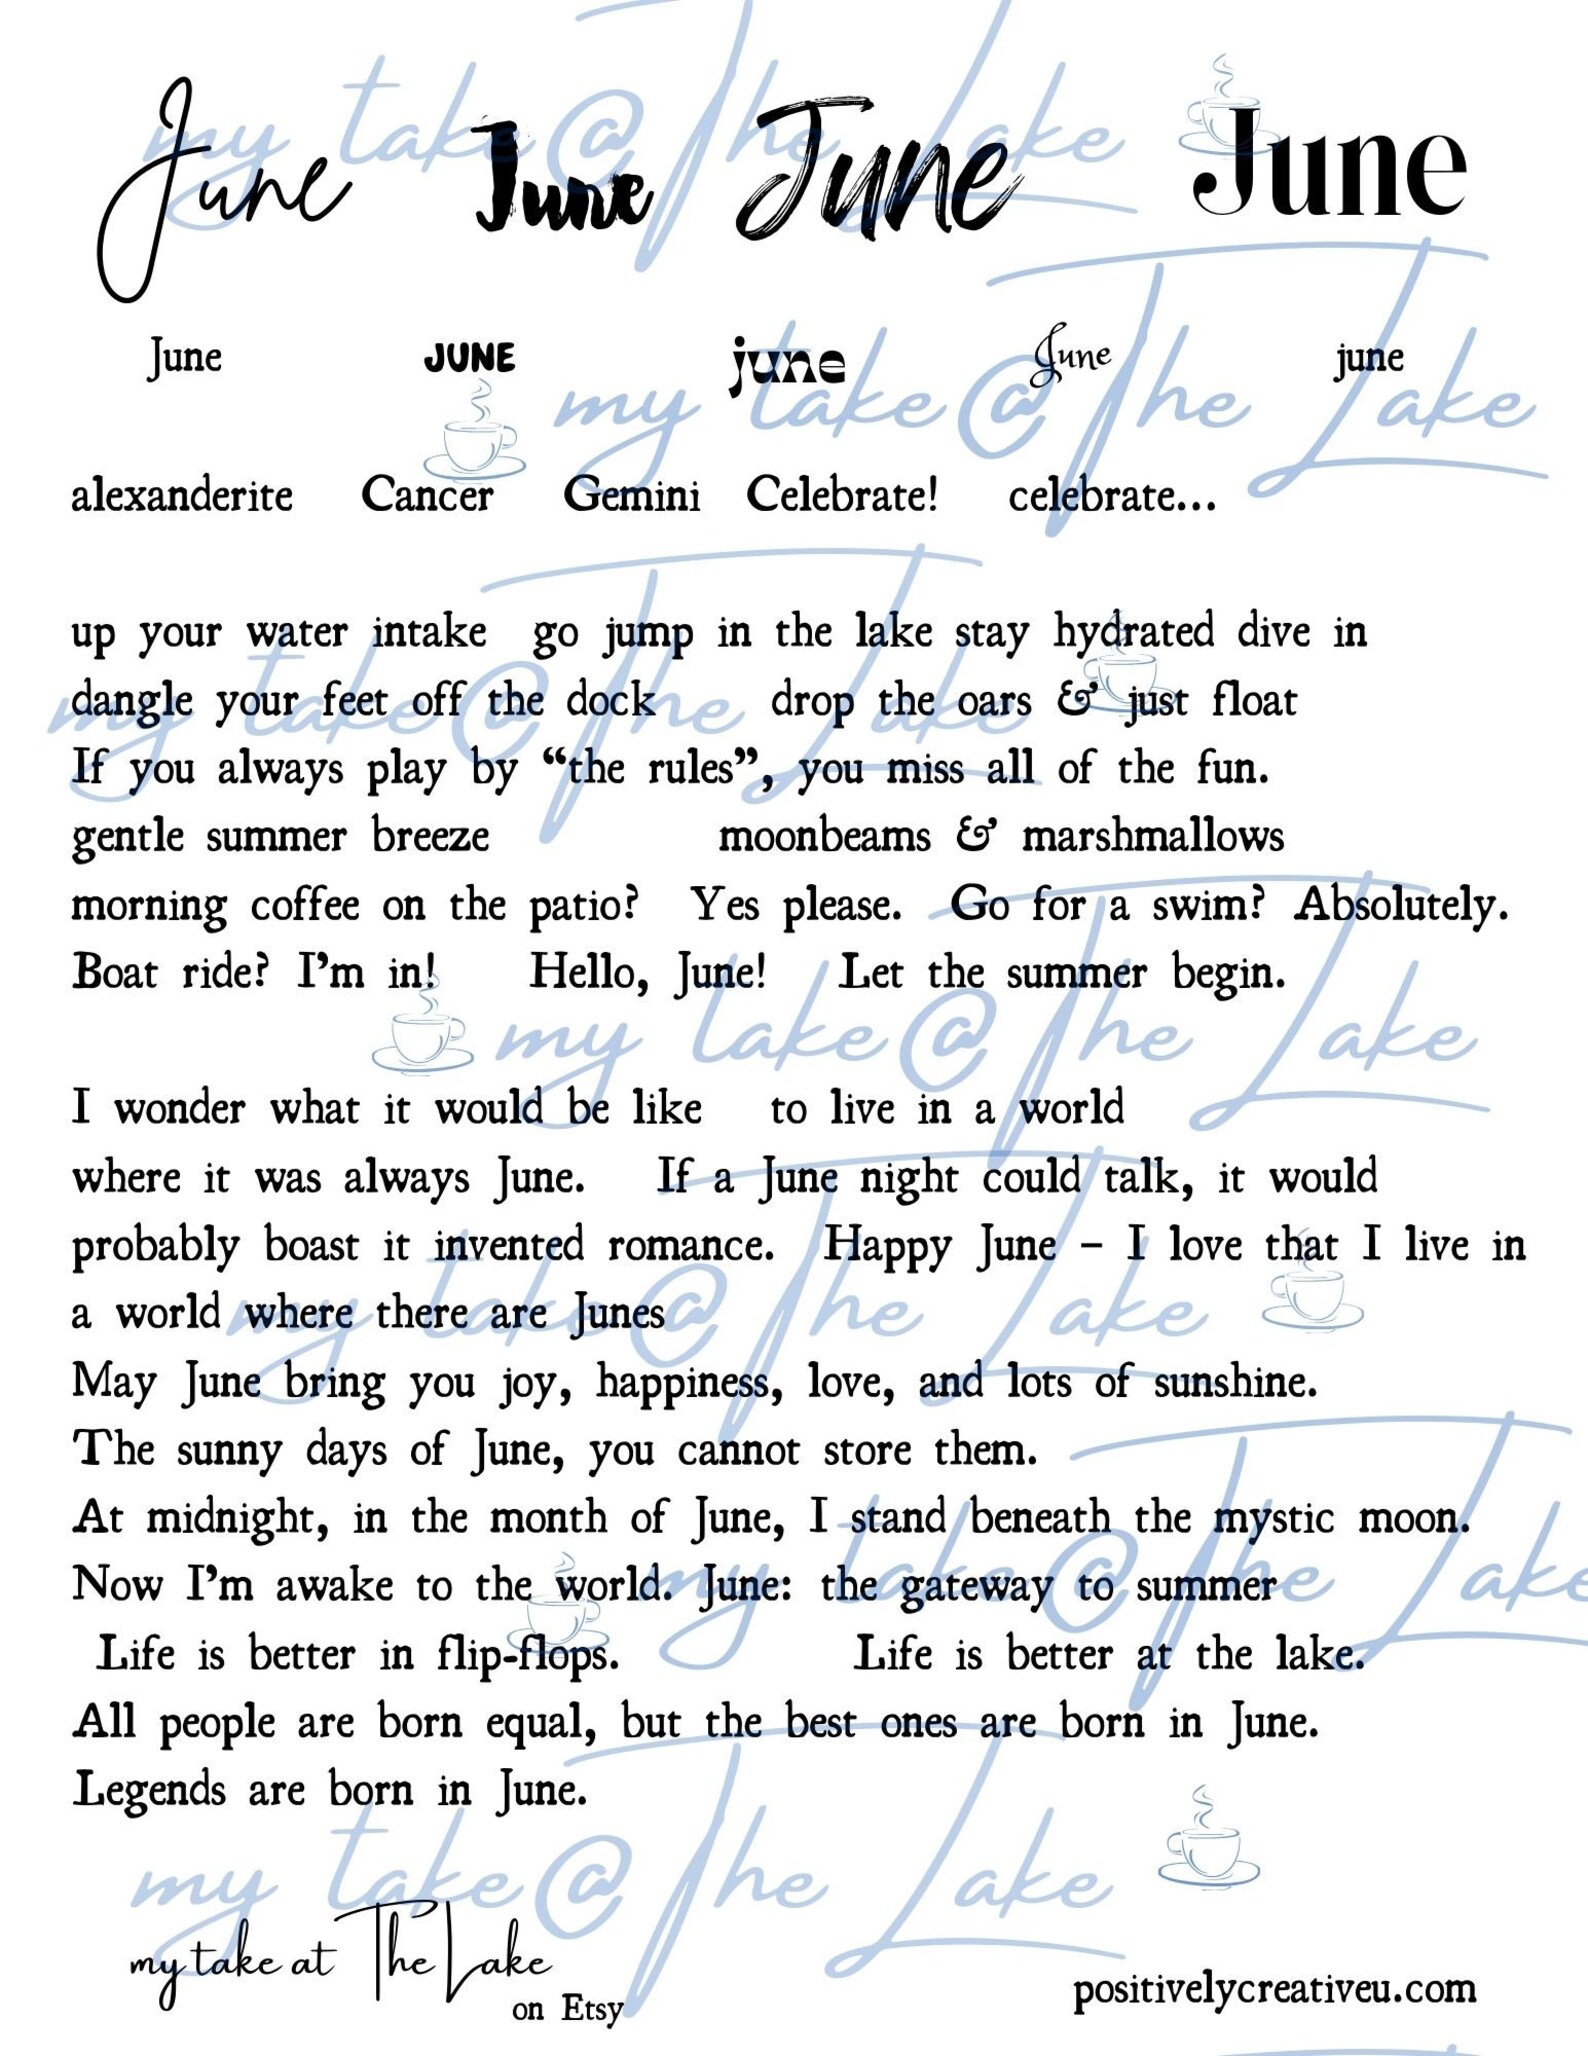 my take @ The Lake
June June June June
June JUNE june June june
my take @ The Lake
alexanderite Cancer Gemini Celebrate! celebrate...
up your water intake go jump in the lake stay hydrated dive in
dangle your feet off the dock drop the oars & just float
my take @ The Lake
If you always play by “the rules”, you miss all of the fun.
gentle summer breeze moonbeams & marshmallows
morning coffee on the patio? Yes please. Go for a swim? Absolutely.
Boat ride? I’m in! Hello, June! Let the summer begin.
my take @ The Lake
I wonder what it would be like to live in a world
where it was always June. If a June night could talk, it would
probably boast it invented romance. Happy June – I love that I live in
a world where there are Junes
my take @ The Lake
May June bring you joy, happiness, love, and lots of sunshine.
The sunny days of June, you cannot store them.
At midnight, in the month of June, I stand beneath the mystic moon.
Now I’m awake to the world. June: the gateway to summer
my take @ The Lake
Life is better in flip-flops. Life is better at the lake.
All people are born equal, but the best ones are born in June.
Legends are born in June.
my take @ The Lake
my take at The Lake
on Etsy
positivelycreativeu.com